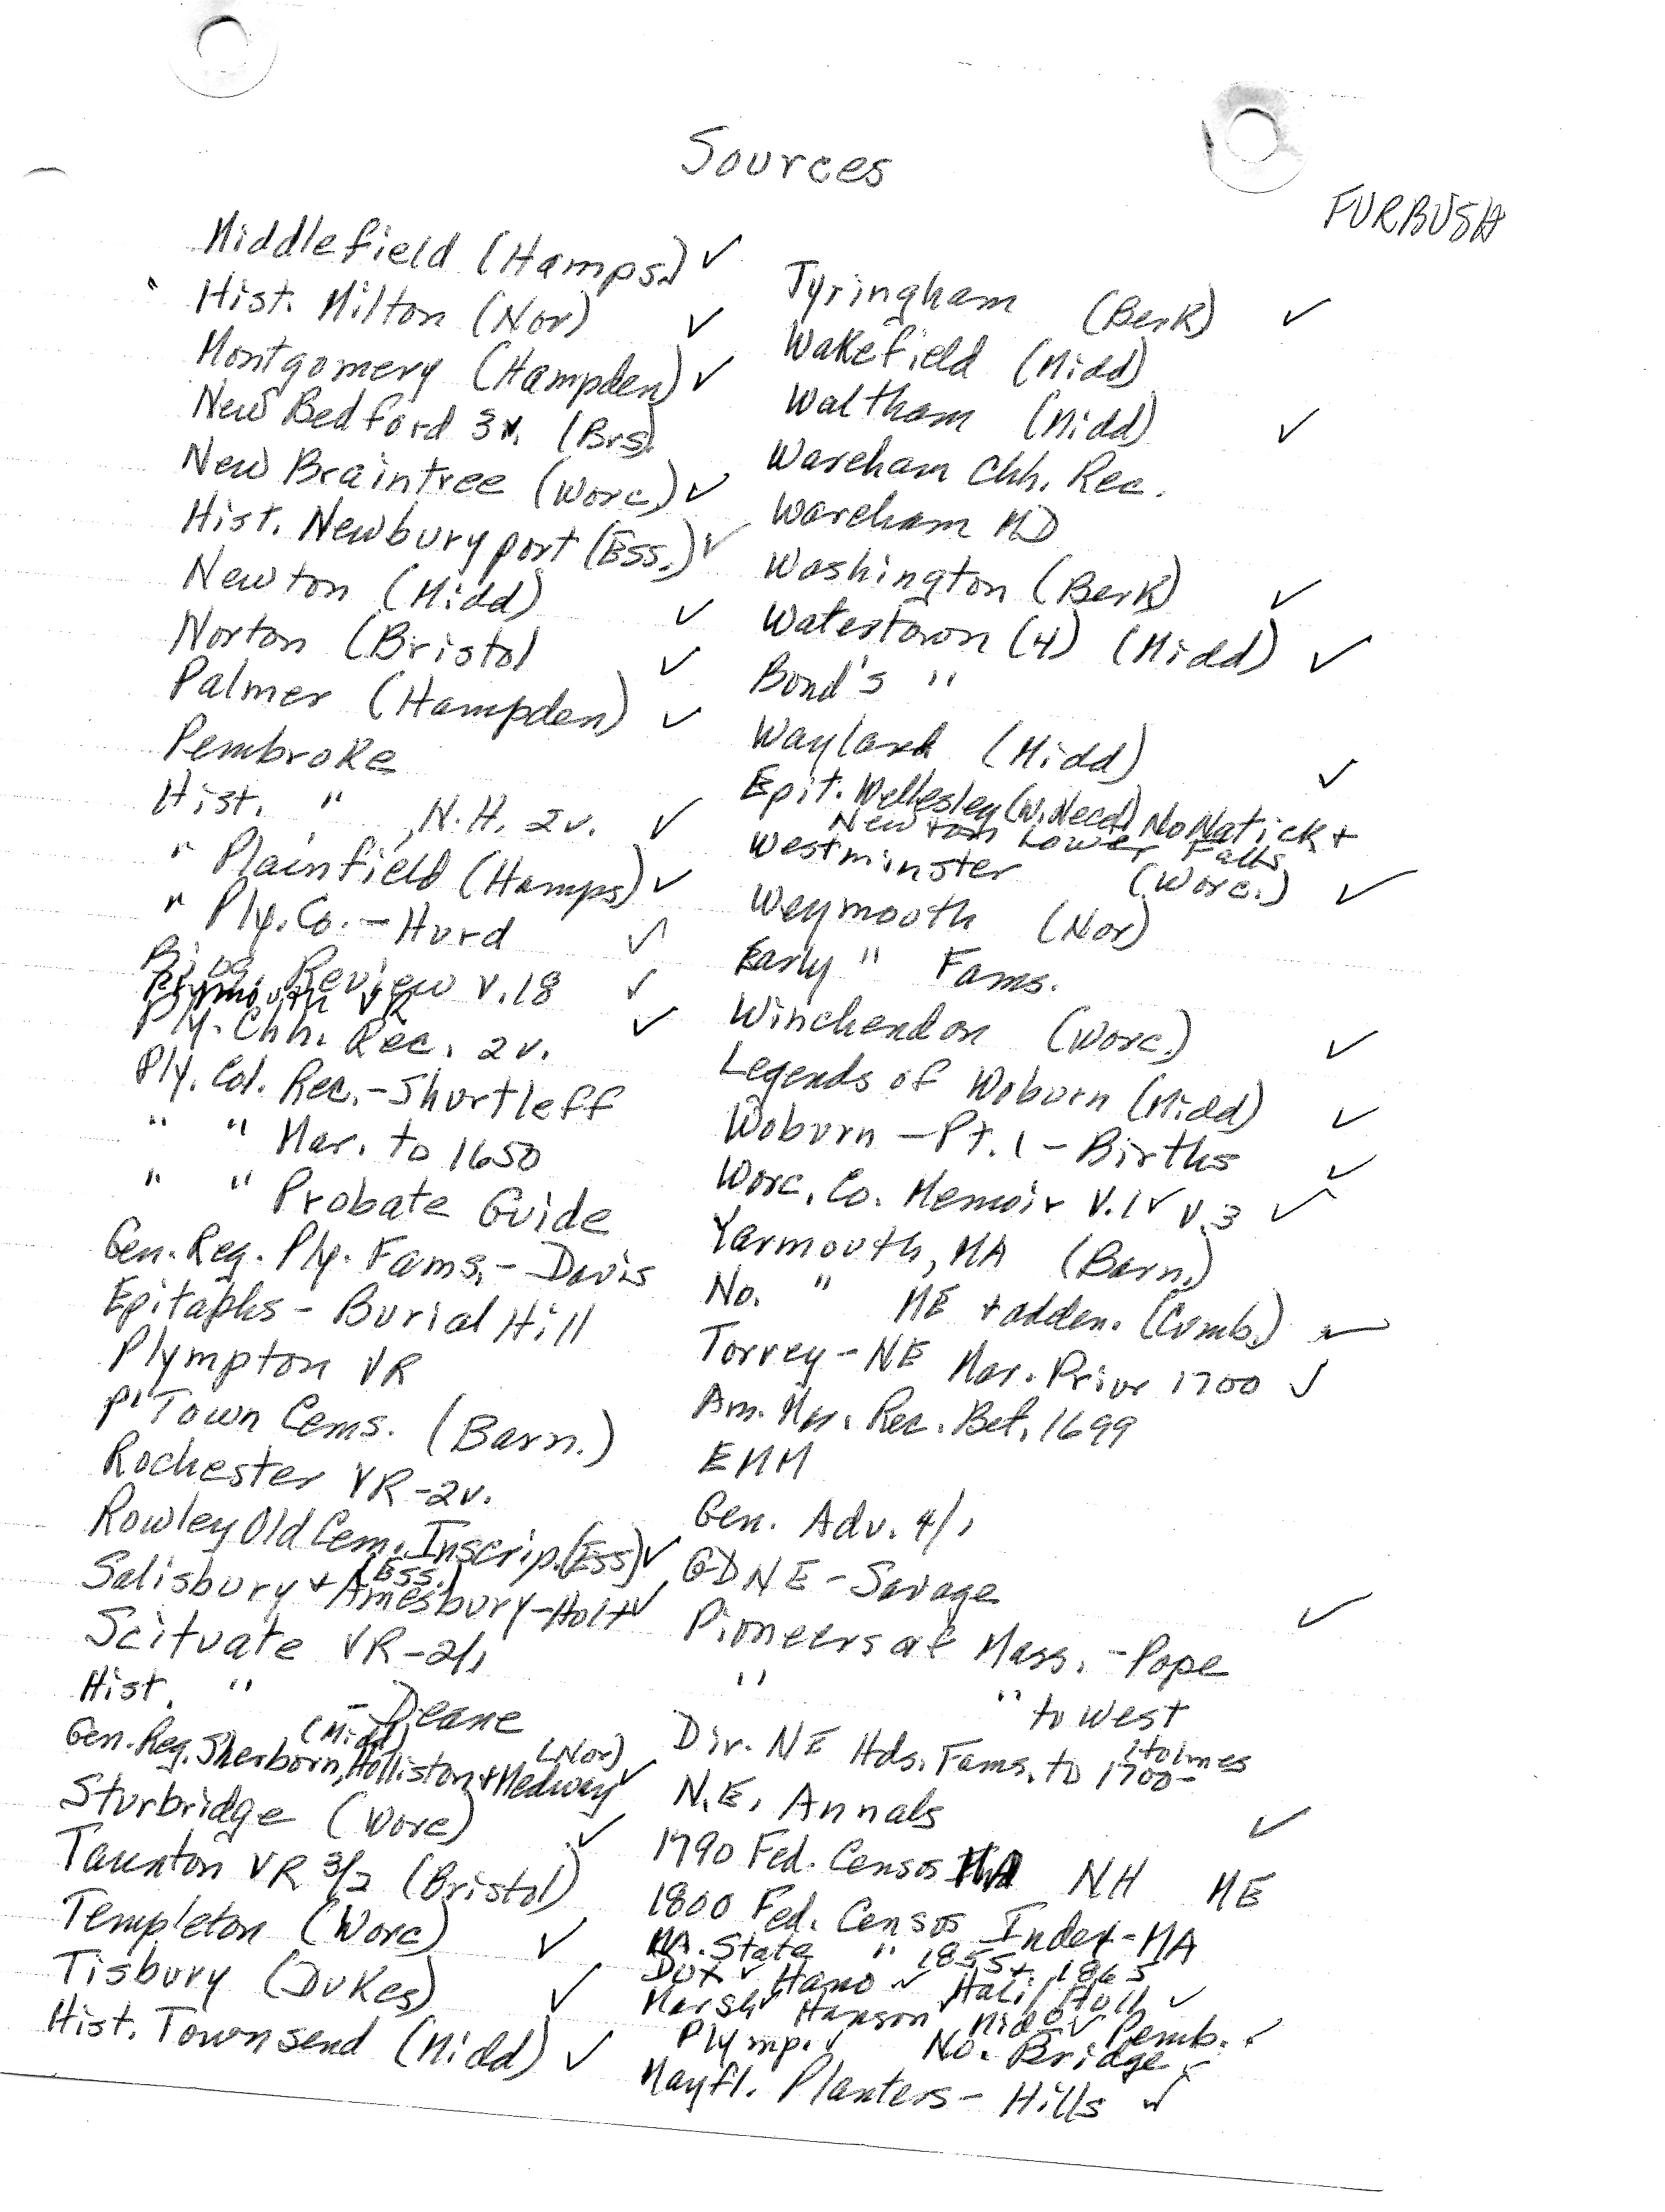 Sources
FURBUSH
Middlefield (Hamps.) ✓
Hist. Milton (Nor) ✓
Montgomery (Hampden) ✓
New Bedford 3v. (Brs)
New Braintree (Worc.) ✓
Hist. Newburyport (Ess.) ✓
Newton (Midd) ✓
Norton (Bristol ✓
Palmer (Hampden) ✓
Pembroke
Hist. " , N.H. 2v. ✓
" Plainfield (Hamps) ✓
" Ply. Co. - Hurd ✓
Biog. Review v.18 ✓
Plymouth VR ✓
Ply. Chh. Rec. 2v.
Ply. Col. Rec. - Shurtleff
" " Mar. to 1650
" " Probate Guide
Gen. Reg. Ply. Fams. - Davis
Epitaphs - Burial Hill
Plympton VR
P'Town Cems. (Barn.)
Rochester VR-2v.
Rowley Old Cem. Inscrip. (Ess) ✓
(Ess.)
Salisbury + Amesbury - Hoit ✓
Scituate VR-2/1
Hist. " - Deane
(Midd) (Nor)
Gen. Reg. Sherborn, Holliston + Medway ✓
Sturbridge (Worc) ✓
Taunton VR 3/2 (Bristol)
Templeton (Worc) ✓
Tisbury (Dukes) ✓
Hist. Townsend (Midd) ✓
Tyringham (Berk) ✓
Wakefield (Midd)
Waltham (Midd) ✓
Wareham Chh. Rec.
Wareham MD
Washington (Berk) ✓
Watertown (4) (Midd) ✓
Bond's "
Wayland (Midd) ✓
Epit. Wellesley (W. Need) No Natick +
Newton Lower Falls
Westminster (Worc.) ✓
Weymouth (Nor)
Early " Fams.
Winchendon (Worc.) ✓
Legends of Woburn (Midd) ✓
Woburn - Pt. 1 - Births ✓
Worc. Co. Memoir V.1 ✓ V.3 ✓
Yarmouth, MA (Barn.)
No. " ME + adden. (Cumb.) ✓
Torrey - NE Mar. Prior 1700 ✓
Am. Mar. Rec. Bef. 1699
EMM
Gen. Adv. 4/1
GDNE - Savage
Pioneers of Mass. - Pope ✓
" " to West
Dir. NE Hds. Fams. to 1700 - Holmes
N.E. Annals
1790 Fed. Census MA NH ME ✓
1800 Fed. Census Index - MA
MA. State " 1855 + 1865
Dux ✓ Hano ✓ Hali/Holl ✓
Marsh ✓ Hanson ✓ Midd ✓ Pemb. ✓
Plymp. ✓ No. Bridge ✓
Mayfl. Planters - Hills ✓